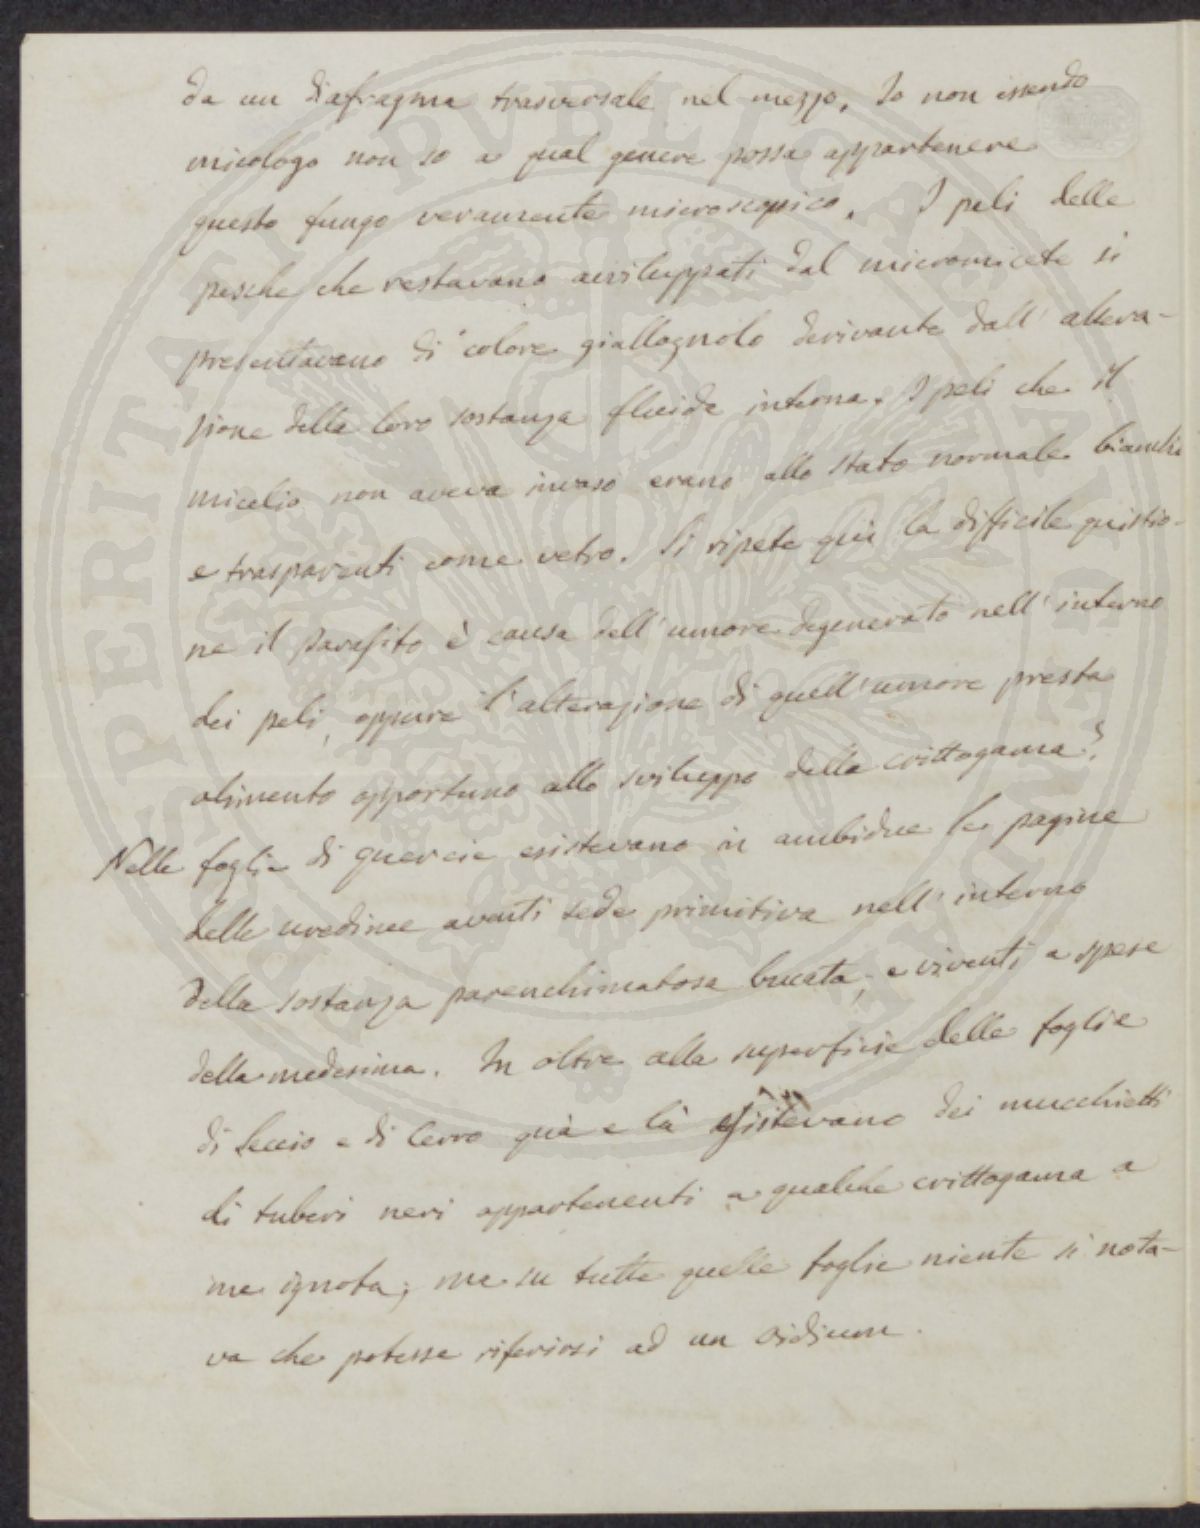 da un diafragma trasversale nel mezzo. Io non essendo
micologo non so a qual genere possa appartenere
questo fungo veramente microscopico. I peli delle
pesche che restavano avviluppati dal micromicete si
presentavano di colore giallognolo derivante dall'altera-
zione della loro sostanza fluida interna. I peli che il
micelio non aveva invaso erano allo stato normale bianchi
e trasparenti come vetro. Si ripete quì la difficile quistio-
ne il parasito è causa dell'umore degenerato nell'interno
dei peli, oppure l'alterazione di quell'umore presta
alimento opportuno allo sviluppo della crittogama?
Nelle foglie di quercie esistevano in ambidue le pagine
delle uredinee aventi sede primitiva nell'interno
della sostanza parenchimatosa bucata, e viventi a spese
della medesima. In oltre alla superficie delle foglie
di Leccio e di Cerro quà e là esistevano dei mucchietti
di tuberi neri appartenenti a qualche crittogama a
me ignota; ma su tutte quelle foglie niente si nota-
va che potesse riferirsi ad un Oidium.
PERITAT PUBLICA